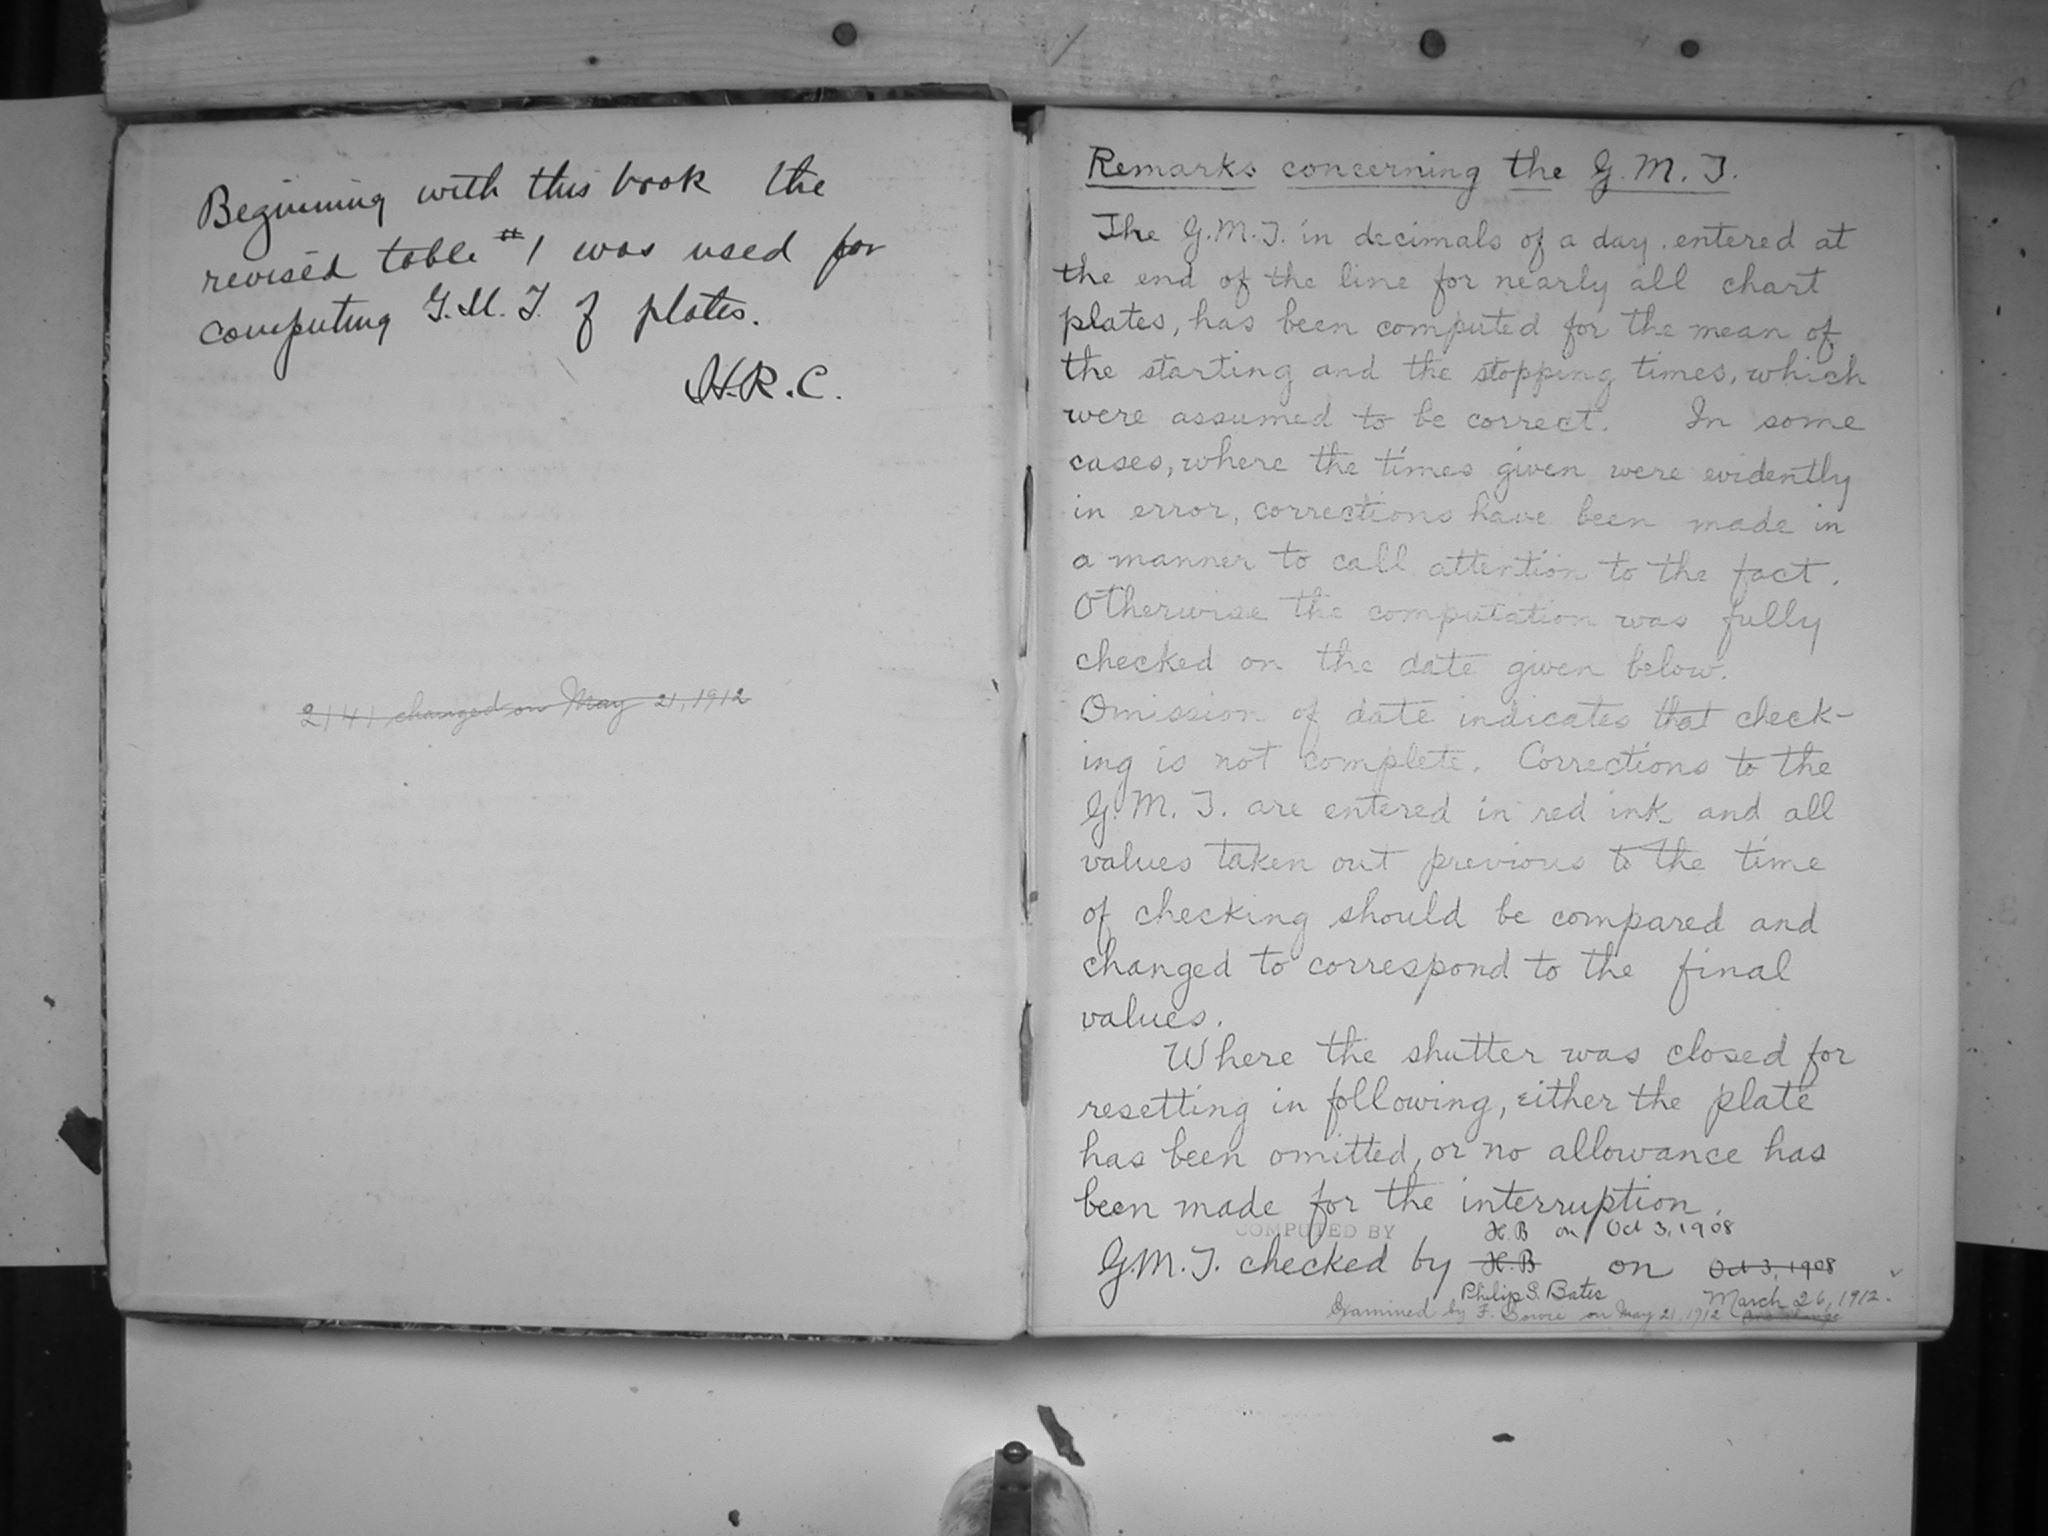 Beginning with this book the
revised table #1 was used for
computing G.M.T. of plates.
H.R.C.
2141 changed on May 21, 1912
Remarks concerning the G.M.T.
The G.M.T. in decimals of a day, entered at
the end of the line for nearly all chart
plates, has been computed for the mean of
the starting and the stopping times, which
were assumed to be correct. In some
cases, where the times given were evidently
in error, corrections have been made in
a manner to call attention to the fact.
Otherwise the computation was fully
checked on the date given below.
Omission of date indicates that check-
ing is not complete. Corrections to the
G.M.T. are entered in red ink and all
values taken out previous to the time
of checking should be compared and
changed to correspond to the final
values.
Where the shutter was closed for
resetting in following, either the plate
has been omitted, or no allowance has
been made for the interruption.
COMPUTED BY H.B on Oct 3, 1908
G.M.T. checked by H.B on Oct 3, 1908
Philip S. Bates March 26, 1912.
Examined by F. on May 21, 1912